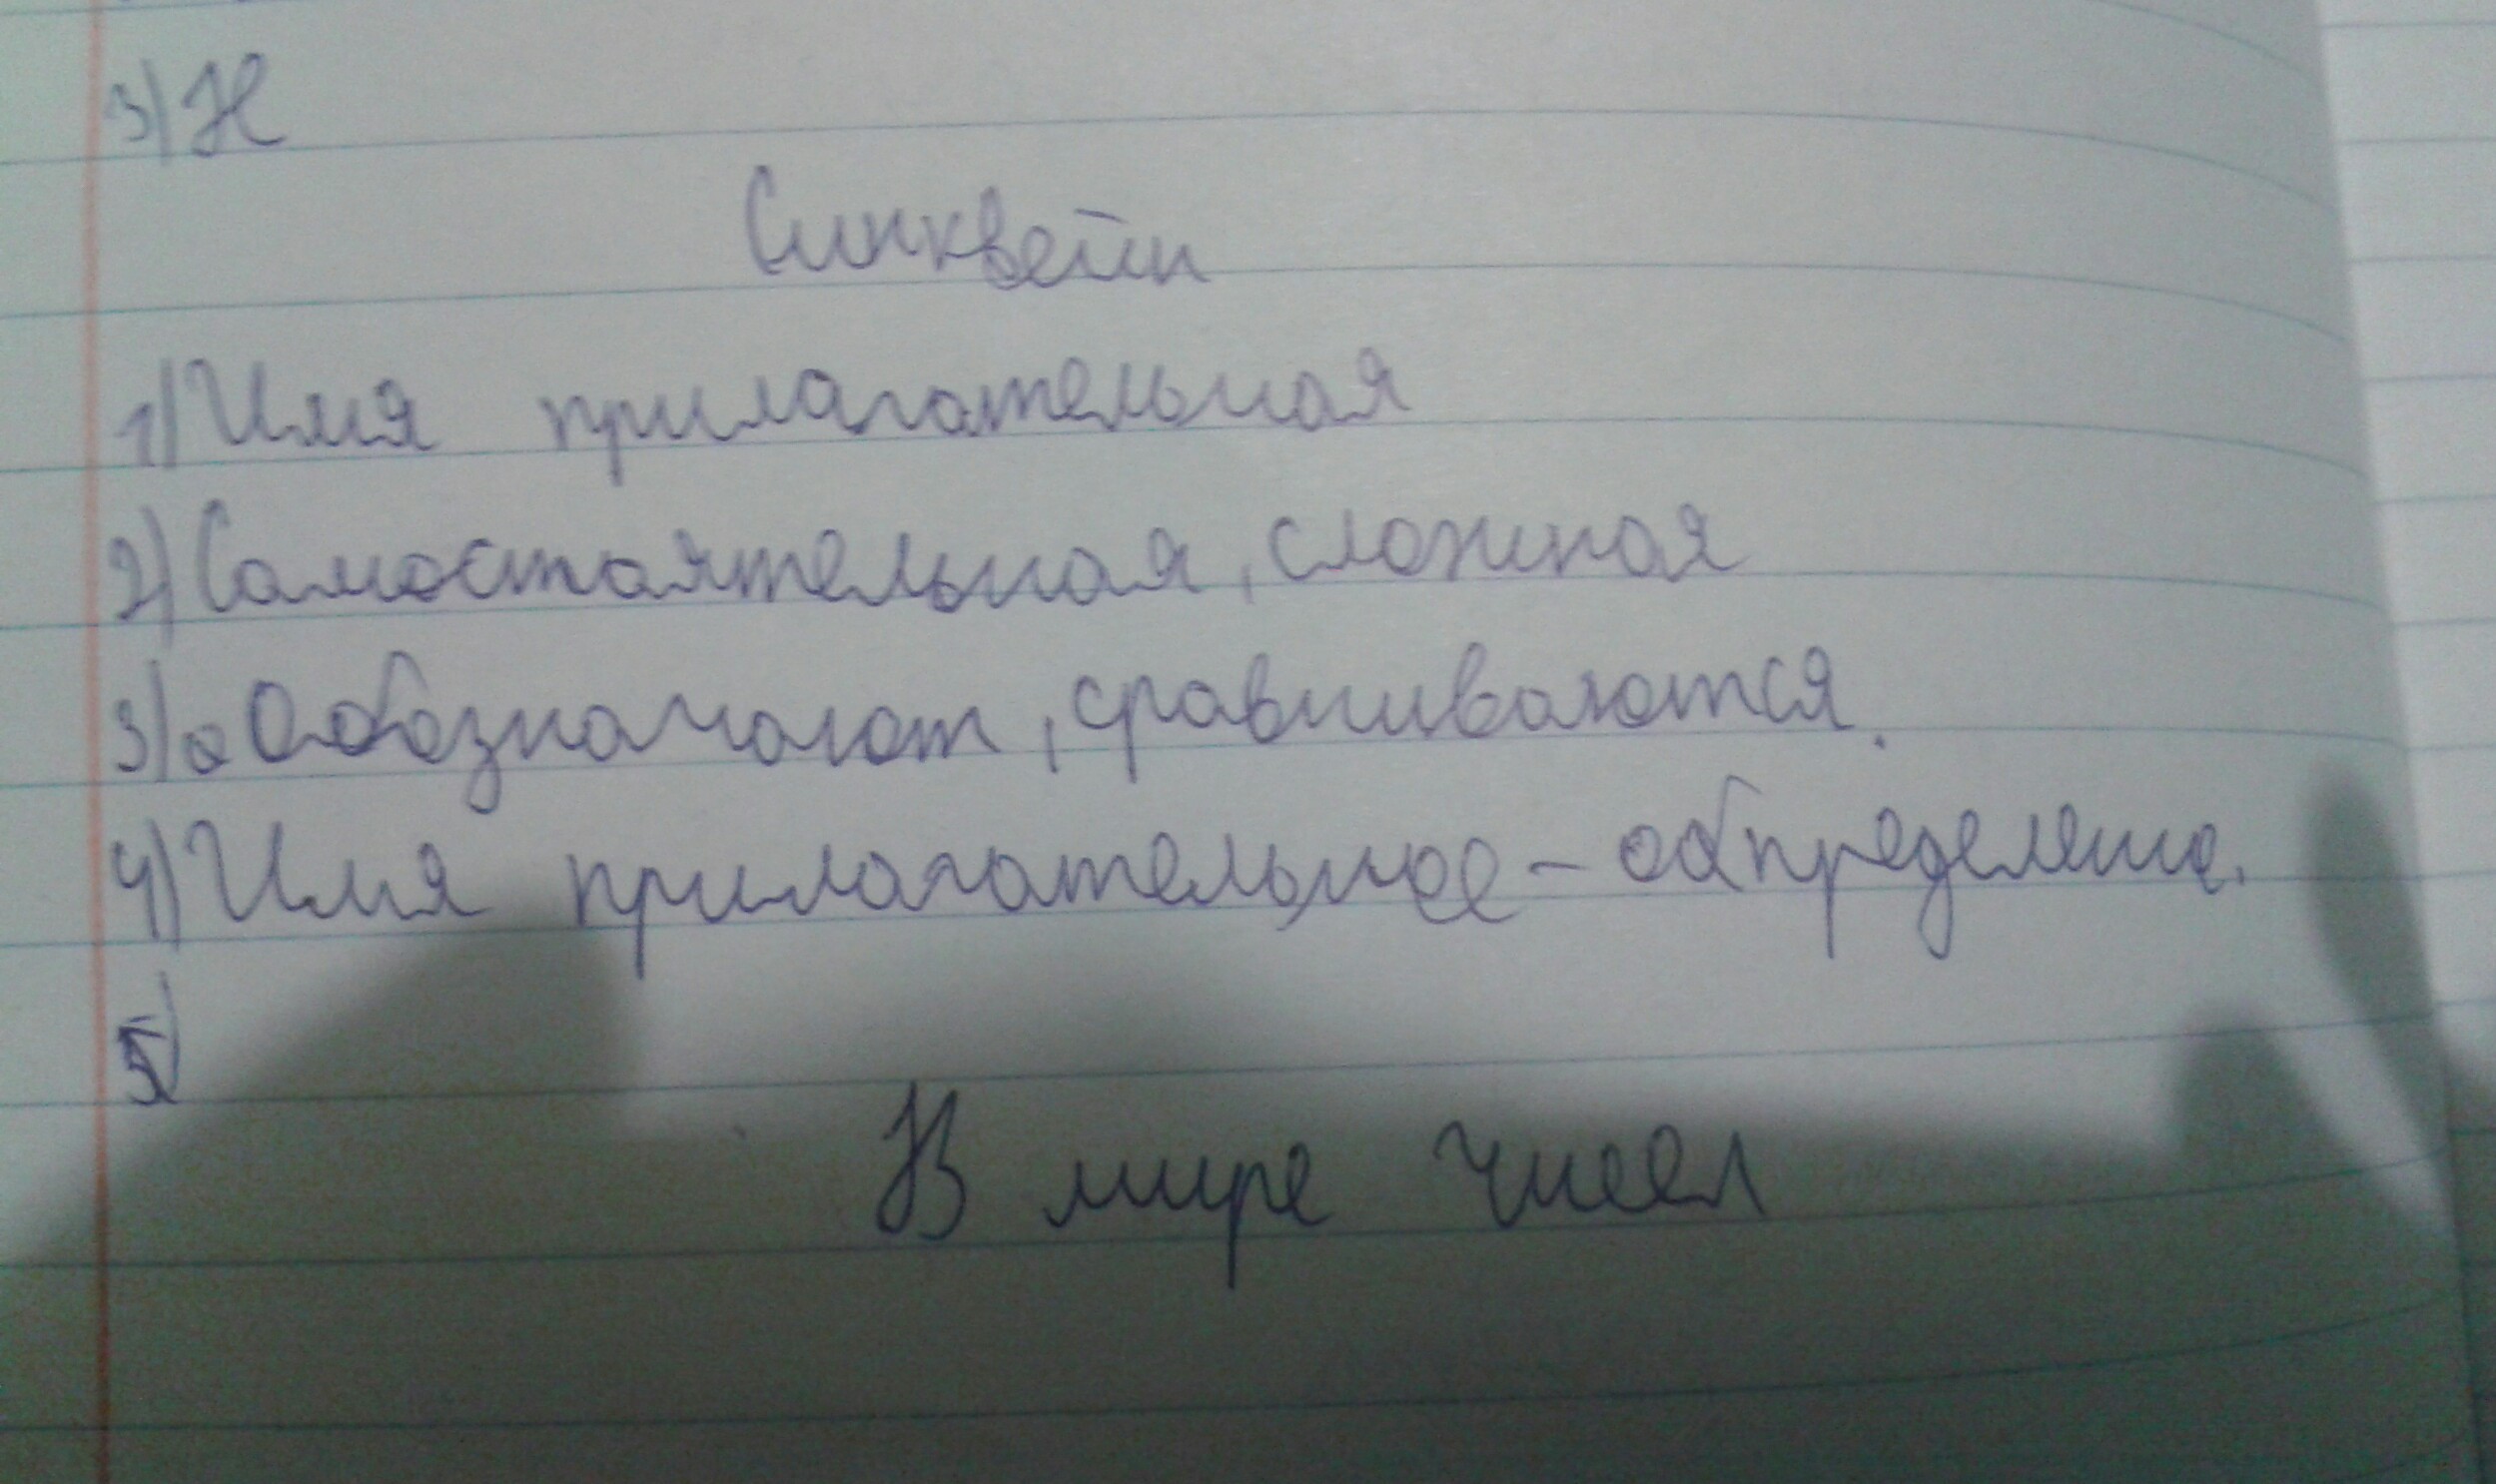 3) Н
Синквейн
1) Имя прилагательная
2) Самостоятельная, сложная
3) Обозначают, сравниваются.
4) Имя прилагательное –
5)
В мире чисел